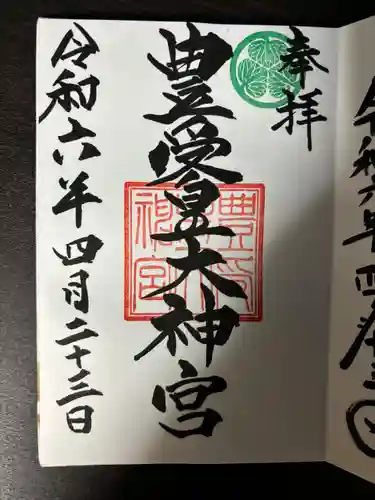 奉拝
豊受皇大神宮
令和六年四月二十三日
令和六年四月